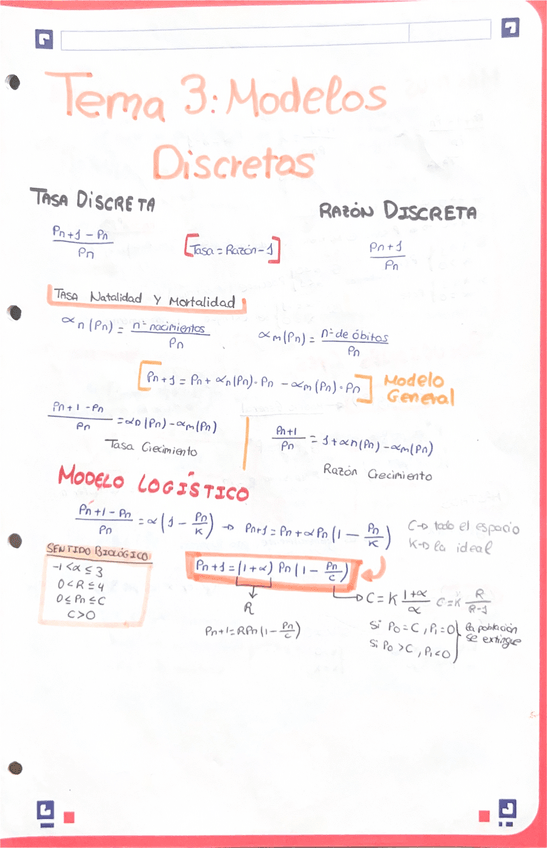 Tema 3: Modelos
Discretos
TASA DISCRETA
RAZÓN DISCRETA
Pn+1 - Pn / Pn
[Tasa = Razón - 1]
Pn+1 / Pn
TASA Natalidad Y Mortalidad
αn(Pn) = nº nacimientos / Pn
αm(Pn) = nº de óbitos / Pn
[Pn+1 = Pn + αn(Pn)·Pn - αm(Pn)·Pn]
Modelo
General
Pn+1 - Pn / Pn = αn(Pn) - αm(Pn)
Tasa Crecimiento
Pn+1 / Pn = 1 + αn(Pn) - αm(Pn)
Razón Crecimiento
MODELO LOGÍSTICO
Pn+1 - Pn / Pn = α(1 - Pn/K) → Pn+1 = Pn + αPn(1 - Pn/K)
C→ todo el espacio
K→ la ideal
SENTIDO BIOLÓGICO
-1<α≤3
0<R≤4
0≤Pn≤C
C>0
Pn+1 = (1+α) Pn (1 - Pn/C)
R
Pn+1 = RPn(1 - Pn/C)
C = K 1+α/α C = K R/R-1
Si P0 = C, P1 = 0
Si P0 > C, P1 < 0
la población
se extingue